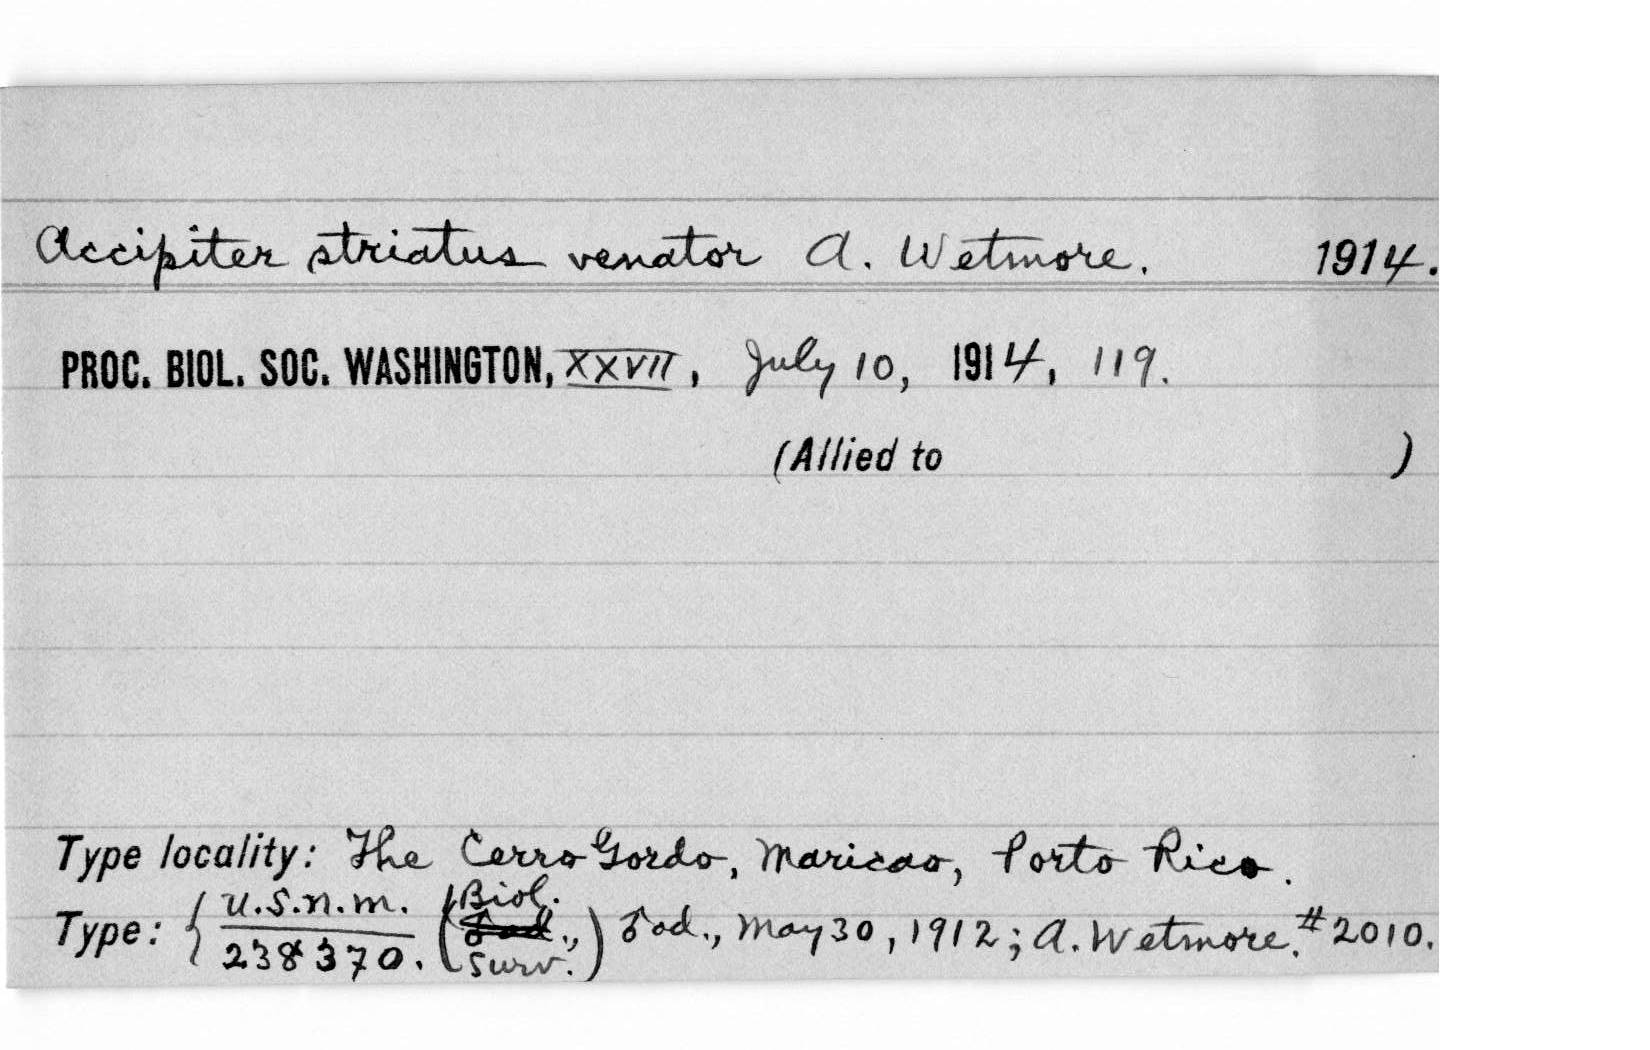 Accipiter striatus venator A. Wetmore. 1914.
PROC. BIOL. SOC. WASHINGTON, XXVII, July 10, 1914, 119.
(Allied to )
Type locality: The Cerro Gordo, Maricao, Porto Rico.
Type: { U.S.N.M. / 238370. (Biol. Surv.) ♂ ad., May 30, 1912; A. Wetmore. #2010.